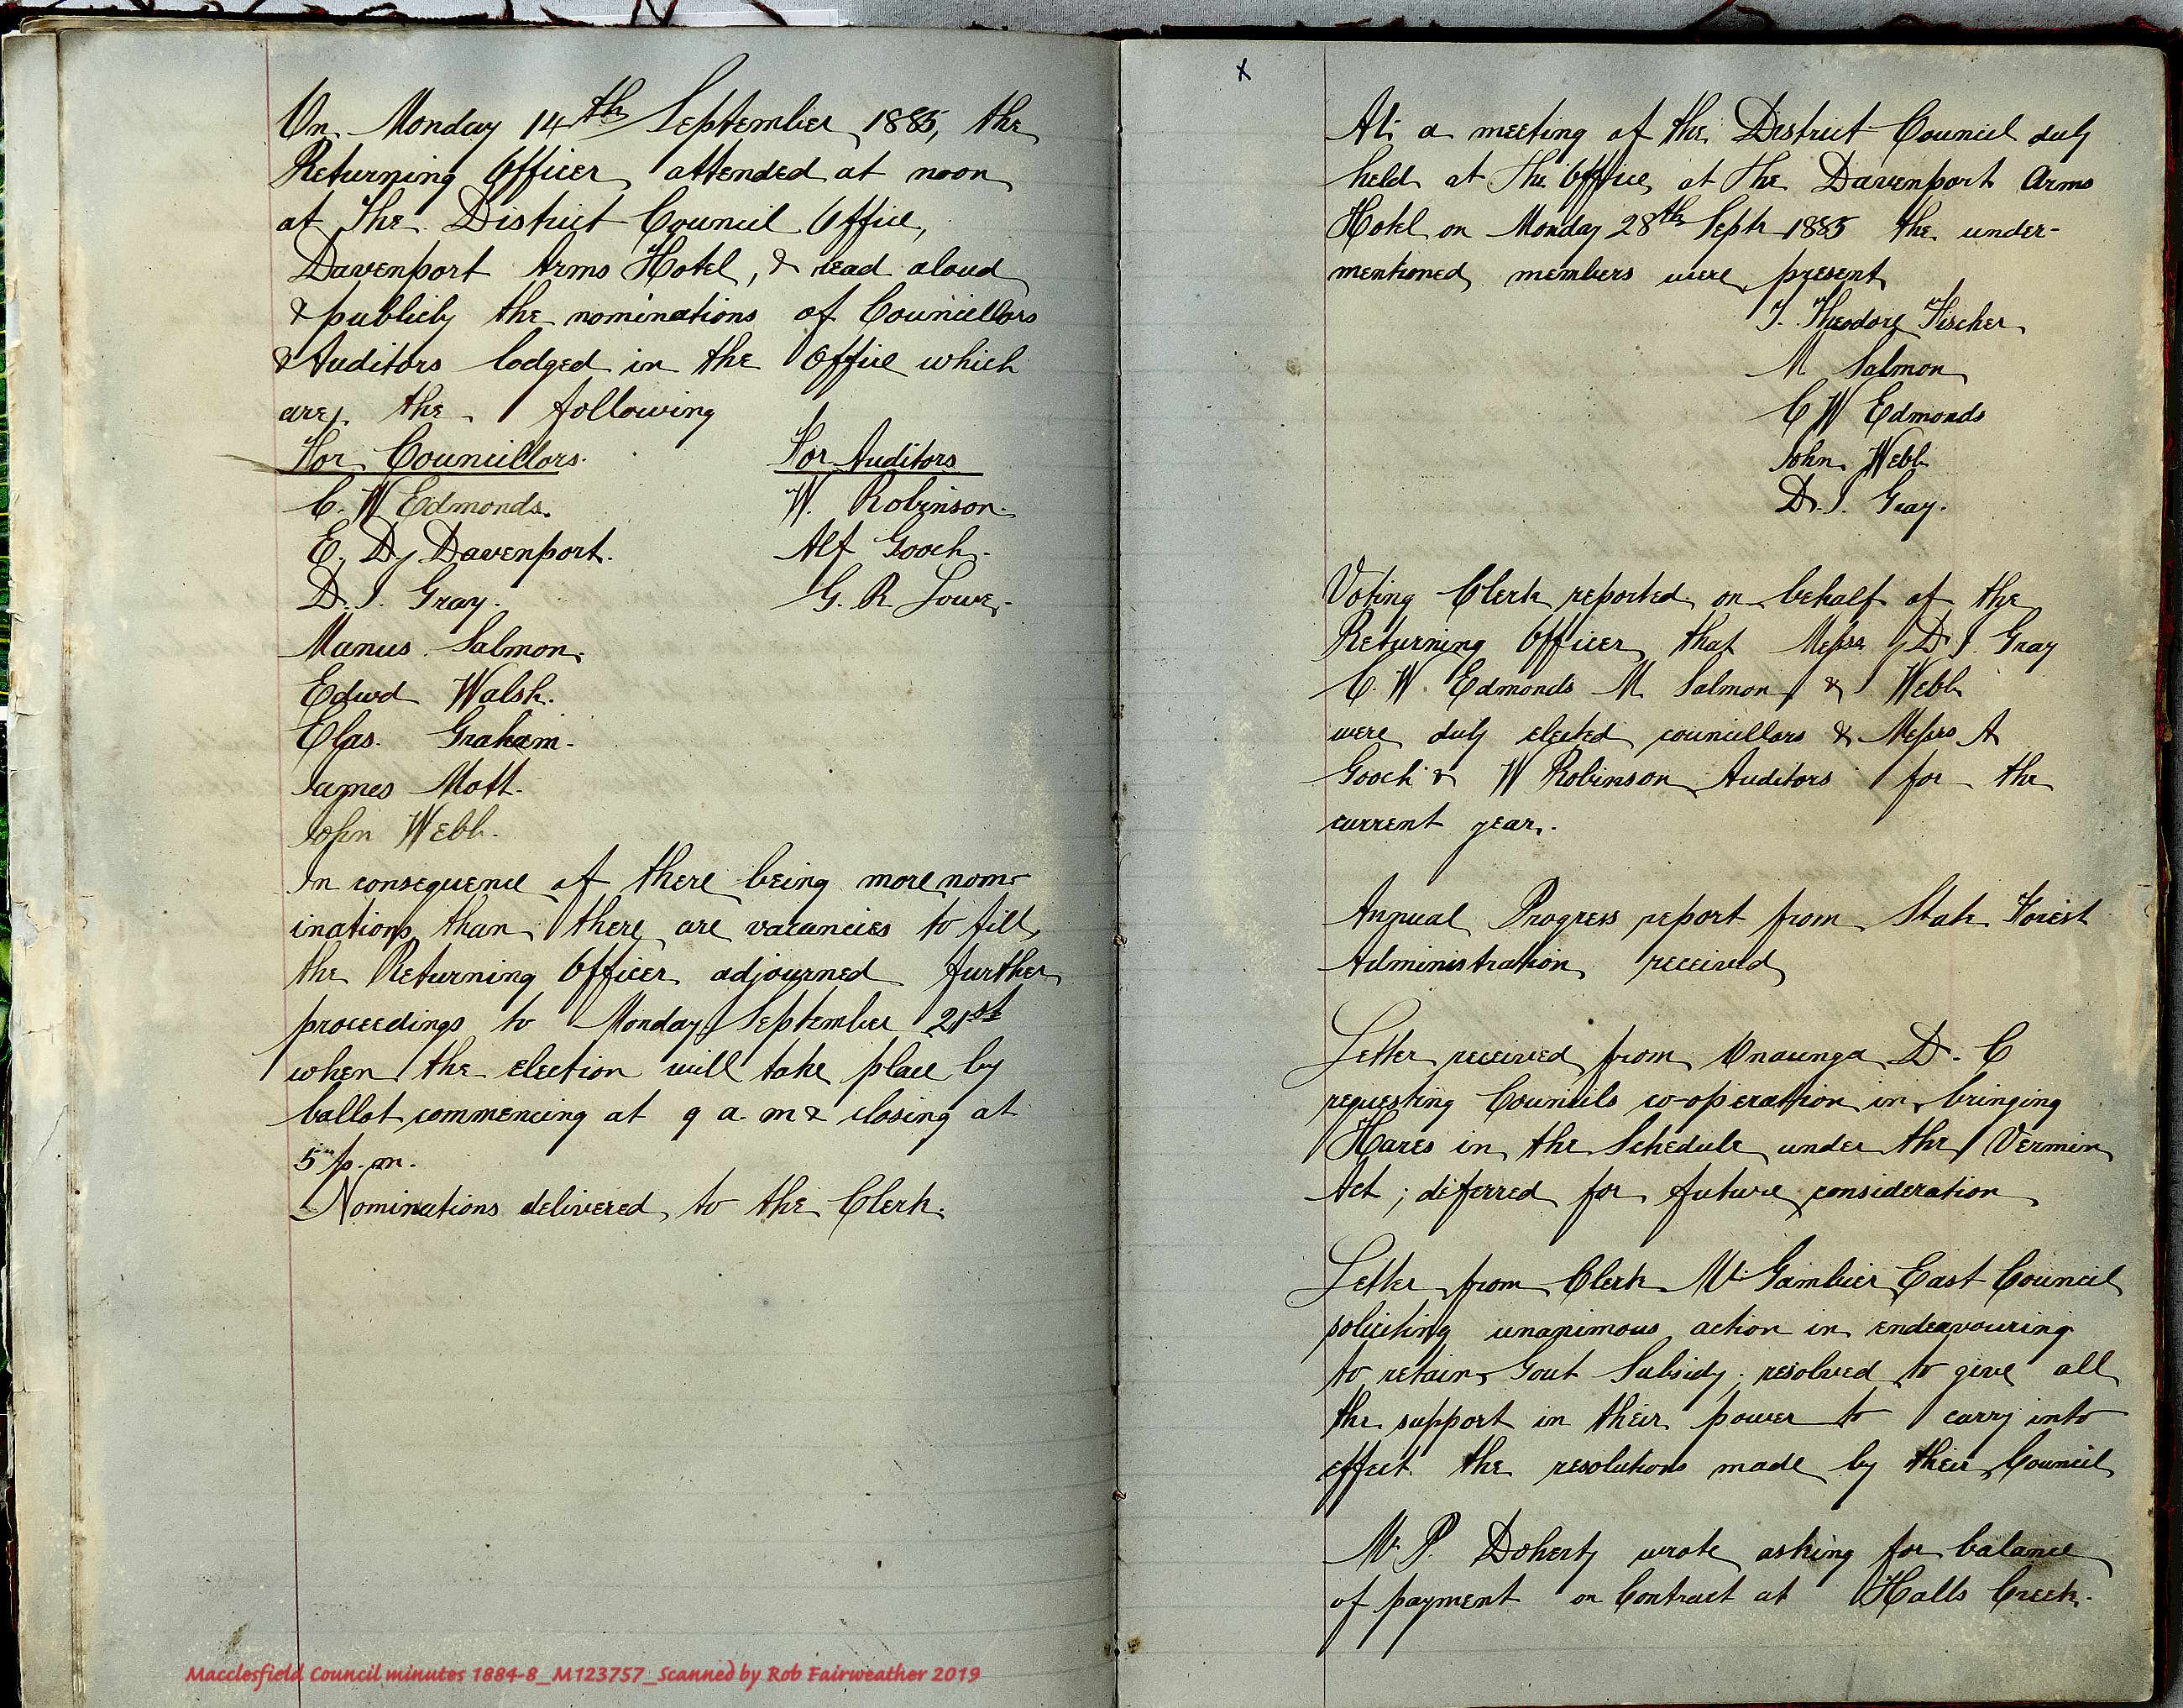 On Monday 14th September 1885, the
Returning Officer attended at noon
at The District Council Office,
Davenport Arms Hotel, & read aloud
& publicly the nominations of Councillors
& Auditors lodged in the Office which
are the following
For Councillors. For Auditors
C. W Edmonds. W. Robinson.
E. D. Davenport. Alf Gooch.
D. J. Gray. G. R. Lowe.
Manus Salmon.
Edwd Walsh.
Chas. Graham.
James Mott.
John Webb.
In consequence of there being more nom-
inations than there are vacancies to fill
the Returning Officer adjourned further
proceedings to Monday September 21st
when the election will take place by
ballot commencing at 9 a. m & closing at
5 p. m.
Nominations delivered to the Clerk.
x
At a meeting of the District Council duly
held at The Office at the Davenport Arms
Hotel on Monday 28th Septr 1885 the under-
mentioned members were present
J. Theodore Fischer
M Salmon
C W Edmonds
John Webb
D. J. Gray.
Voting Clerk reported on behalf of the
Returning Officer that Messrs D J. Gray
C. W. Edmonds M Salmon & J Webb
were duly elected councillors & Messrs A
Gooch & W Robinson Auditors for the
current year.
Annual Progress report from State Forest
Administration received
Letter received from Onaunga D. C
requesting Councils co-operation in bringing
Hares in the Schedule under the Vermin
Act ; deferred for future consideration
Letter from Clerk Mt Gambier East Council
soliciting unanimous action in endeavouring
to retain Govt Subsidy; resolved to give all
the support in their power to carry into
effect the resolutions made by their Council
Mr P. Doherty wrote asking for balance
of payment on Contract at Halls Creek.
Macclesfield Council minutes 1884-8_M123757_Scanned by Rob Fairweather 2019